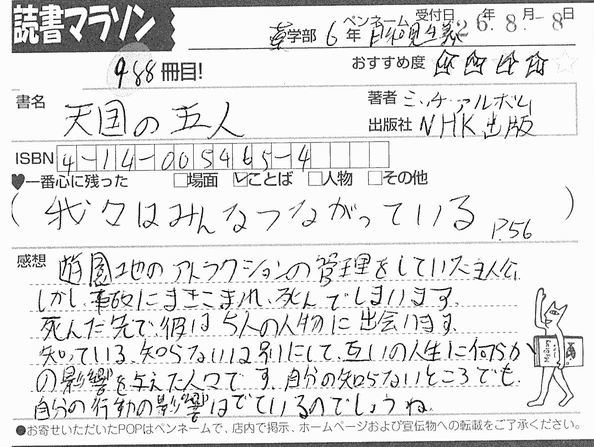 読書マラソン
988冊目!
薬学部 6年 ペンネーム 自和見主義 受付日 26年8月8日
おすすめ度
書名 天国の五人
著者 ミッチ・アルボム
出版社 NHK出版
ISBN 4-14-005465-4
♥一番心に残った □場面 ☑ことば □人物 □その他
(我々はみんなつながっている P.56)
感想 遊園地のアトラクションの管理をしていた主人公
しかし、事故にまきこまれ、死んでしまいます。
死んだ先で彼は5人の人物に出会います。
知っている、知らないは別にして、互いの人生に何らか
の影響を与えた人々です。自分の知らないところでも、
自分の行動の影響はでているのでしょうね
●お寄せいただいたPOPはペンネームで、店内で掲示、ホームページおよび宣伝物への転載をご了承ください。